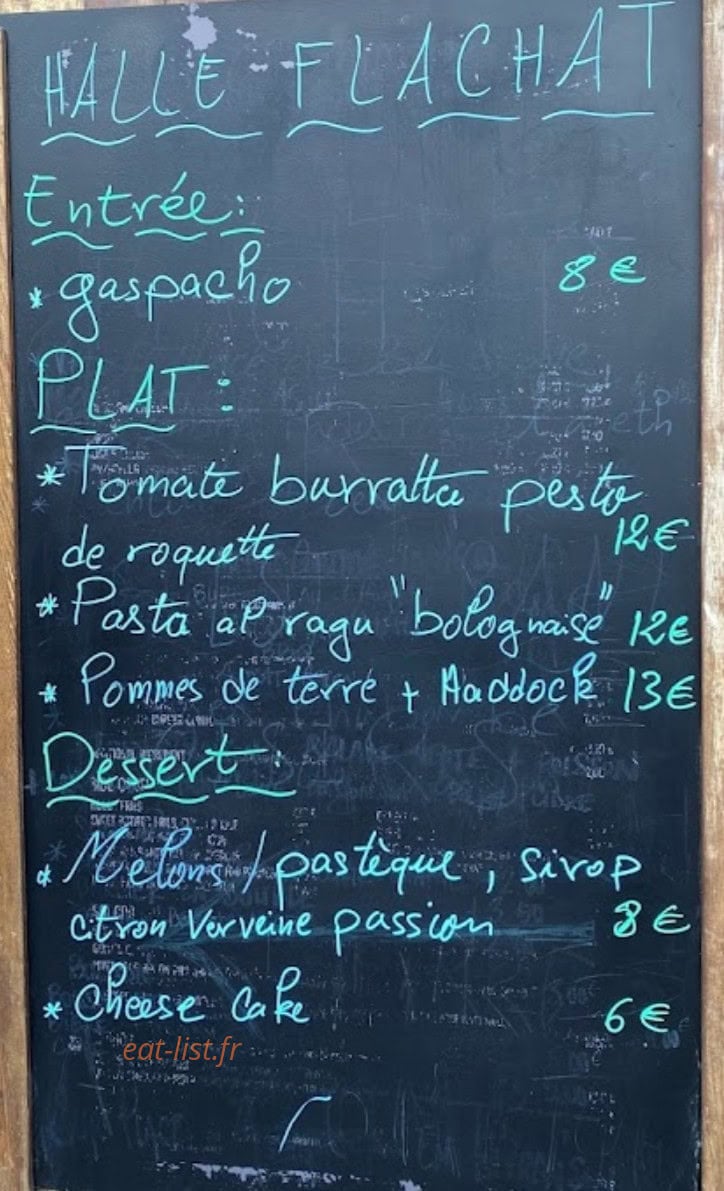 HALLE FLACHAT
Entrée:
* gaspacho 8 €
PLAT:
* Tomate burratta pesto
de roquette 12 €
* Pasta al ragu "bolognaise" 12 €
* Pommes de terre + Haddock 13 €
Dessert:
* Melons / pastèque, sirop
citron verveine passion 8 €
* Cheese cake 6 €
eat-list.fr